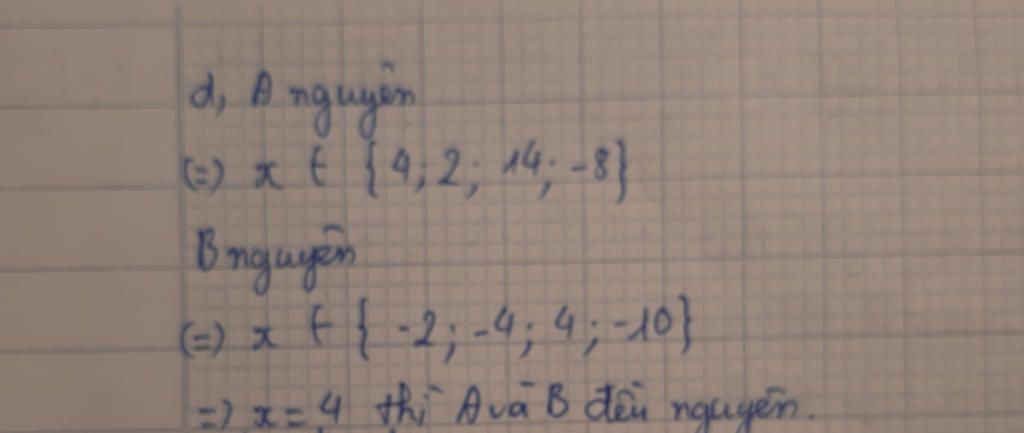 d, A nguyên
(=) x ∈ {4; 2; 14; -8}
B nguyên
(=) x ∈ { -2; -4; 4; -10}
=) x = 4 thì A và B đều nguyên.